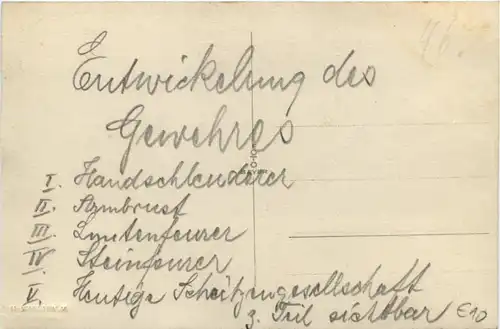 Entwickelung des
Gewehres
I. Handschleuderer
II. Armbrust
III. Luntenfeurer
IV. Steinfeurer
V. Heutige Scheitzengesellschaft
z. Teil sichtbar €10